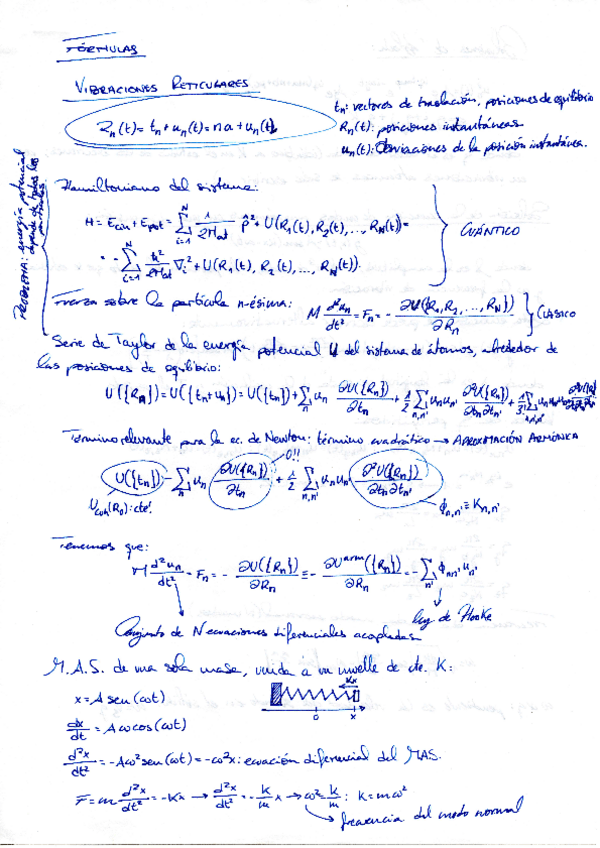 FÓRMULAS
VIBRACIONES RETICULARES
Rₙ(t) = tₙ + uₙ(t) = na + uₙ(t)
tₙ: vectores de traslación, posiciones de equilibrio
Rₙ(t): posiciones instantáneas
uₙ(t): Desviaciones de la posición instantánea.
PROBLEMA: energía potencial depende de todas las
Hamiltoniano del sistema:
H = E_cin + E_pot = Σ_{i=1}^{N} 1/(2M_at) p̂² + U(R₁(t), R₂(t), ..., R_N(t)) =
= - Σ_{i=1}^{N} ħ²/(2M_at) ∇ᵢ² + U(R₁(t), R₂(t), ..., R_N(t)).
CUÁNTICO
Fuerza sobre la partícula n-ésima: M d²uₙ/dt² = Fₙ = - ∂U({R₁, R₂, ..., R_N})/∂Rₙ } CLÁSICO
Serie de Taylor de la energía potencial U del sistema de átomos, alrededor de
las posiciones de equilibrio:
U({Rₙ}) = U({tₙ + uₙ}) = U({tₙ}) + Σₙ uₙ ∂U({Rₙ})/∂tₙ + 1/2 Σ_{n,n'} uₙuₙ' ∂²U({Rₙ})/∂tₙ∂tₙ' + 1/3! Σ
Término relevante para la ec. de Newton: término cuadrático → APROXIMACIÓN ARMÓNICA
0!!
U({tₙ}) - Σₙ uₙ ∂U({Rₙ})/∂tₙ + 1/2 Σ_{n,n'} uₙuₙ' ∂²U({Rₙ})/∂tₙ∂tₙ'
U_coh(R₀): cte!
ϕ_{n,n'} ≡ K_{n,n'}
Tenemos que:
M d²uₙ/dt² = Fₙ = - ∂U({Rₙ})/∂Rₙ ≡ - ∂U^arm({Rₙ})/∂Rₙ = - Σ_{n'} ϕ_{nn'} uₙ'
ley de Hooke
Conjunto de N ecuaciones diferenciales acopladas
M.A.S. de una sola masa, unida a un muelle de cte. K:
x = A sen(ωt)
Kx
0 x
dx/dt = Aω cos(ωt)
d²x/dt² = -Aω² sen(ωt) = -ω²x: ecuación diferencial del MAS.
F = m d²x/dt² = -Kx → d²x/dt² = - k/m x → ω² = k/m; K = mω²
frecuencia del modo normal